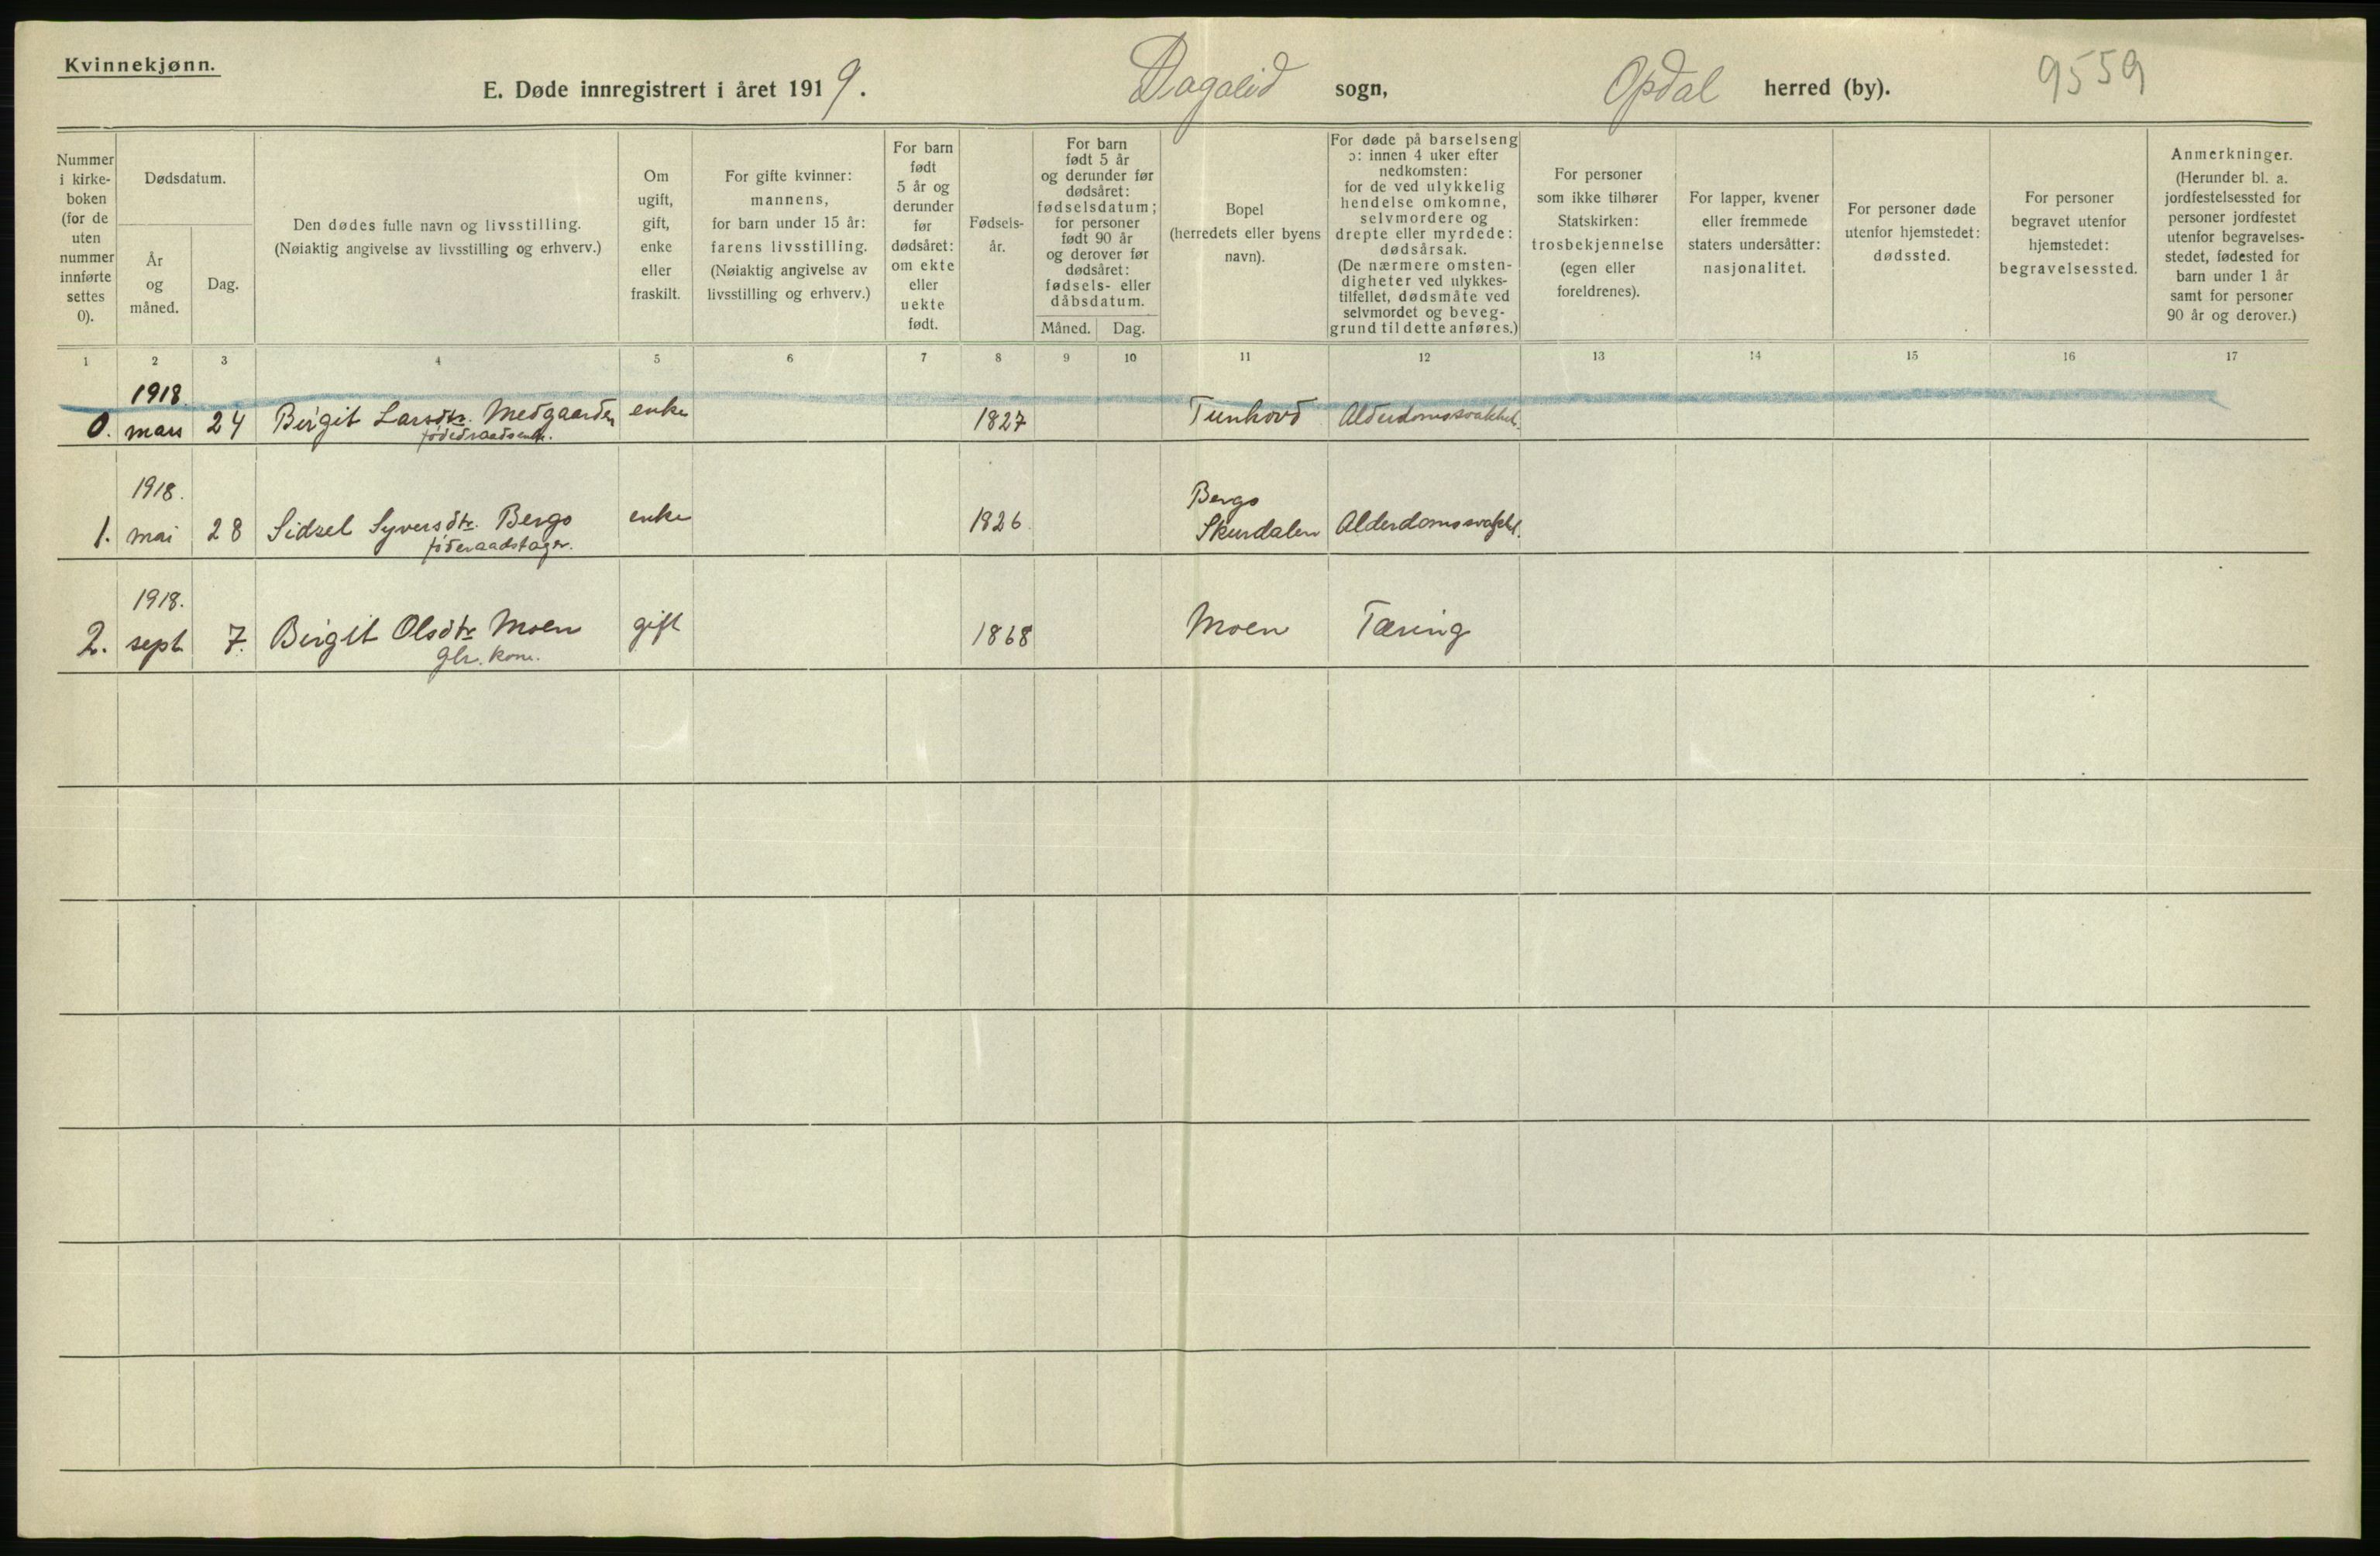 Kvinnekjønn.
E. Døde innregistrert i året 1919. Dagalid sogn, Opdal herred (by). 9559
Nummer i kirke- boken (for de uten nummer innførte settes 0).
Dødsdatum.
År og måned.
Dag.
Den dødes fulle navn og livsstilling.
(Nøiaktig angivelse av livsstilling og erhverv.)
Om ugift, gift, enke eller fraskilt.
For gifte kvinner: mannens, for barn under 15 år: farens livsstilling. (Nøiaktig angivelse av livsstilling og erhverv.)
For barn født 5 år og derunder før dødsåret: om ekte eller uekte født.
Fødsels- år.
For barn født 5 år og derunder før dødsåret: fødselsdatum; for personer født 90 år og derover før dødsåret: fødsels- eller dåbsdatum.
Måned. Dag.
Bopel (herredets eller byens navn).
For døde på barselseng ɔ: innen 4 uker efter nedkomsten: for de ved ulykkelig hendelse omkomne, selvmordere og drepte eller myrdede: dødsårsak. (De nærmere omsten- digheter ved ulykkes- tilfellet, dødsmåte ved selvmordet og beveg- grund til dette anføres.)
For personer som ikke tilhører Statskirken: trosbekjennelse (egen eller foreldrenes).
For lapper, kvener eller fremmede staters undersåtter: nasjonalitet.
For personer døde utenfor hjemstedet: dødssted.
For personer begravet utenfor hjemstedet: begravelsessted.
Anmerkninger. (Herunder bl. a. jordfestelsessted for personer jordfestet utenfor begravelses- stedet, fødested for barn under 1 år samt for personer 90 år og derover.)
1 2 3 4 5 6 7 8 9 10 11 12 13 14 15 16 17
1918.
0. mars 24 Birgit Larsdtr. Medgaarden enke 1827 Tunhovd Alderdomssvakhet.
1918. Bergo
1. mai 28 Sidsel Syversdtr. Bergo enke 1826. Skurdalen Alderdomssvakhet.
føderaadstager.
1918.
2. sept. 7. Birgit Olsdtr Moen gift 1868 Moen Tæring
gbr. kone.